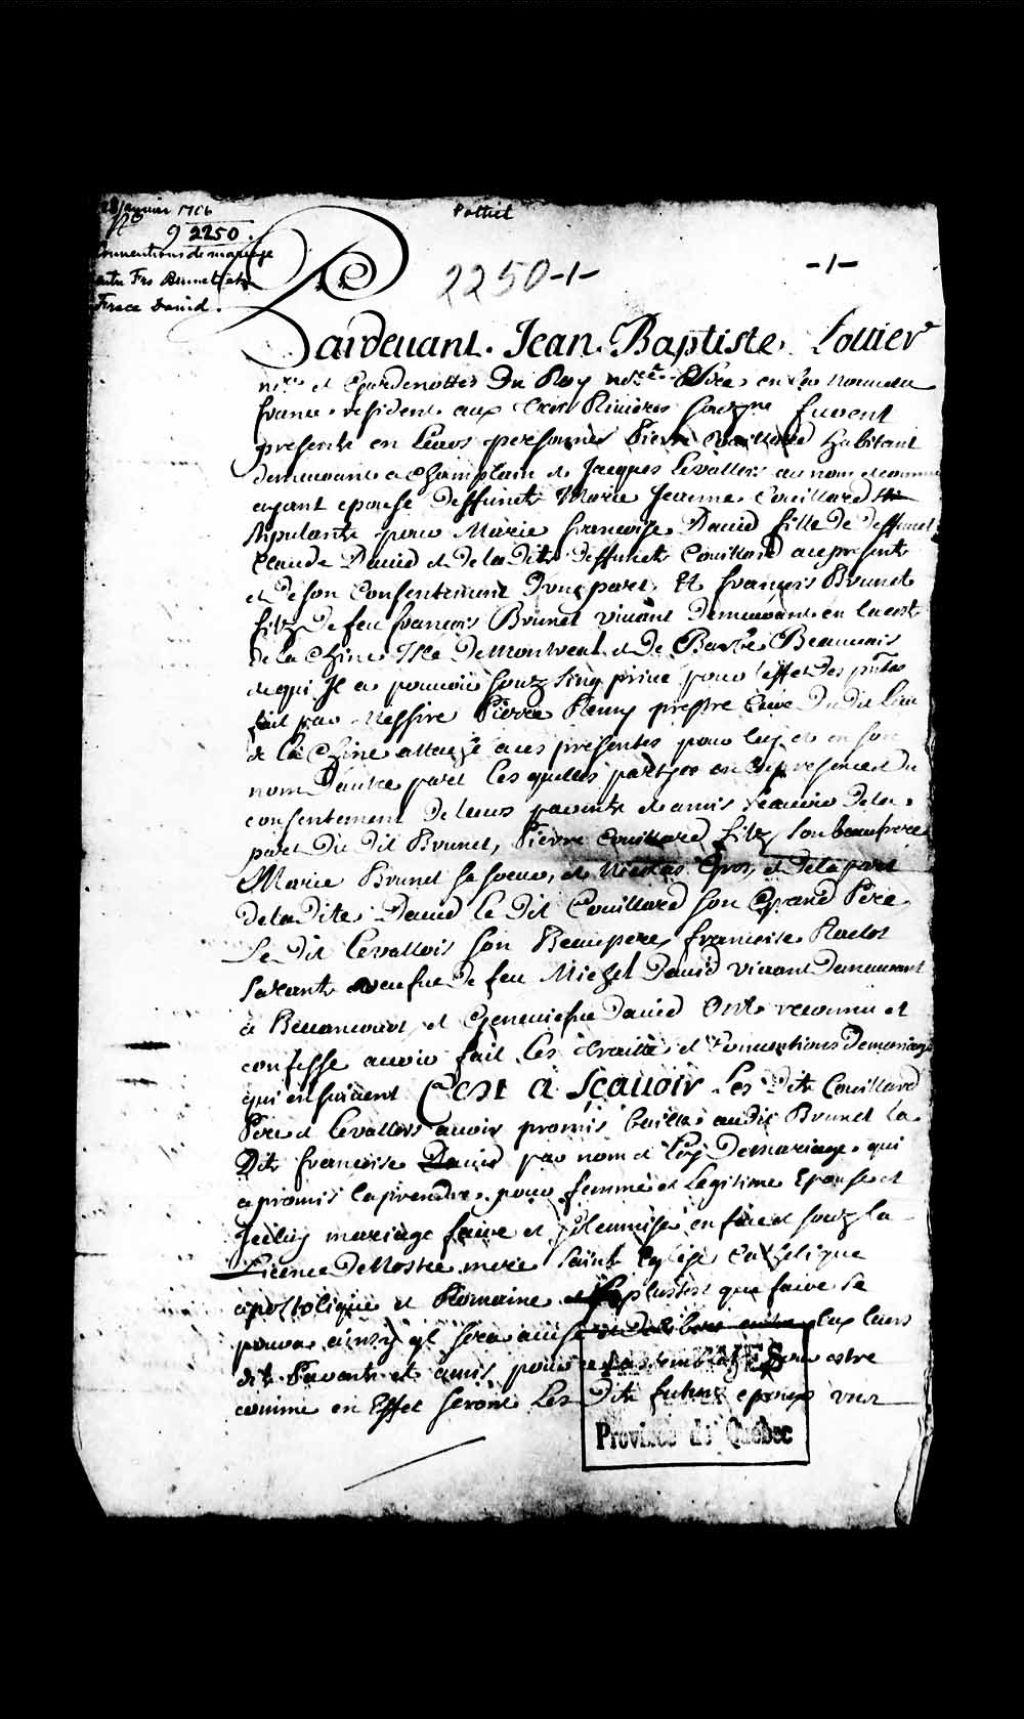 Janvier 1706
No
2250.
Conventions de mariage
entre Frs Brunet et
France David.
Pottiet
2250-1-
-1-
Pardevant. Jean. Baptiste. Pottier
nore et Gardenottes Du Roy en la nouvelle
france residente aux trois Rivieres furent
presents en leurs personnes Pierre Couillard habitant
demeurant a Champlain et Jacques Levallois au nom et comme
ayant epousé deffuncte Marie Jeanne Couillard
stipulants pour Marie francoise David fille de deffunct
Claude David et de ladite deffuncte Couillard a ce presente
et de son Consentement D'une part. Et francois Brunet
filz De feu francois Brunet vivant demeurant en la coste
de la Chine Isle De Montreal et de Barbe Beauvais
de qui Il a pouvoir souz sing privé pour l'effet des pntes
fait par Messire Pierre Remy prestre Curé Du dit lieu
de la Chine attaché a ces presentes pour luy et en son
nom D'autre part Les quelles partyes en la presence et du
consentement de leurs parents et amis scavoir de la
part Du dit Brunet, Pierre Couillard filz son beaufrere
Marie Brunet sa soeur, et Nicolas Gros, et de la part
De la Dite David le dit Couillard son Grand Pere
Le Dit Levallois son Beaupere, francoise Raclos
sa tante veufve De feu Michel David vivant Demeurant
a Becancourt, et Geneviefve David Ont reconnu et
confessé avoir fait les traitté et Conventions De mariage
qui ensuivent C'est a Scavoir Les Dits Couillard
Pere et Levallois avoir promis bailler audit Brunet la
Dite francoise David par nom et loy De mariage qui
a promis la prendre pour femme et Legitime Epouse et
Iceluy mariage faire et solemniser en face et souz la
Licence De Nostre mere Sainte Eglise Catholique
apostolique et Romaine Le plustost que faire se
poura ainsy ql sera avisé et deliberé entre Eux leurs
dits Parents et amis pour estre
comme en Effet seront Les Dits futurs epoux uns
ARCHIVES
Province de Québec